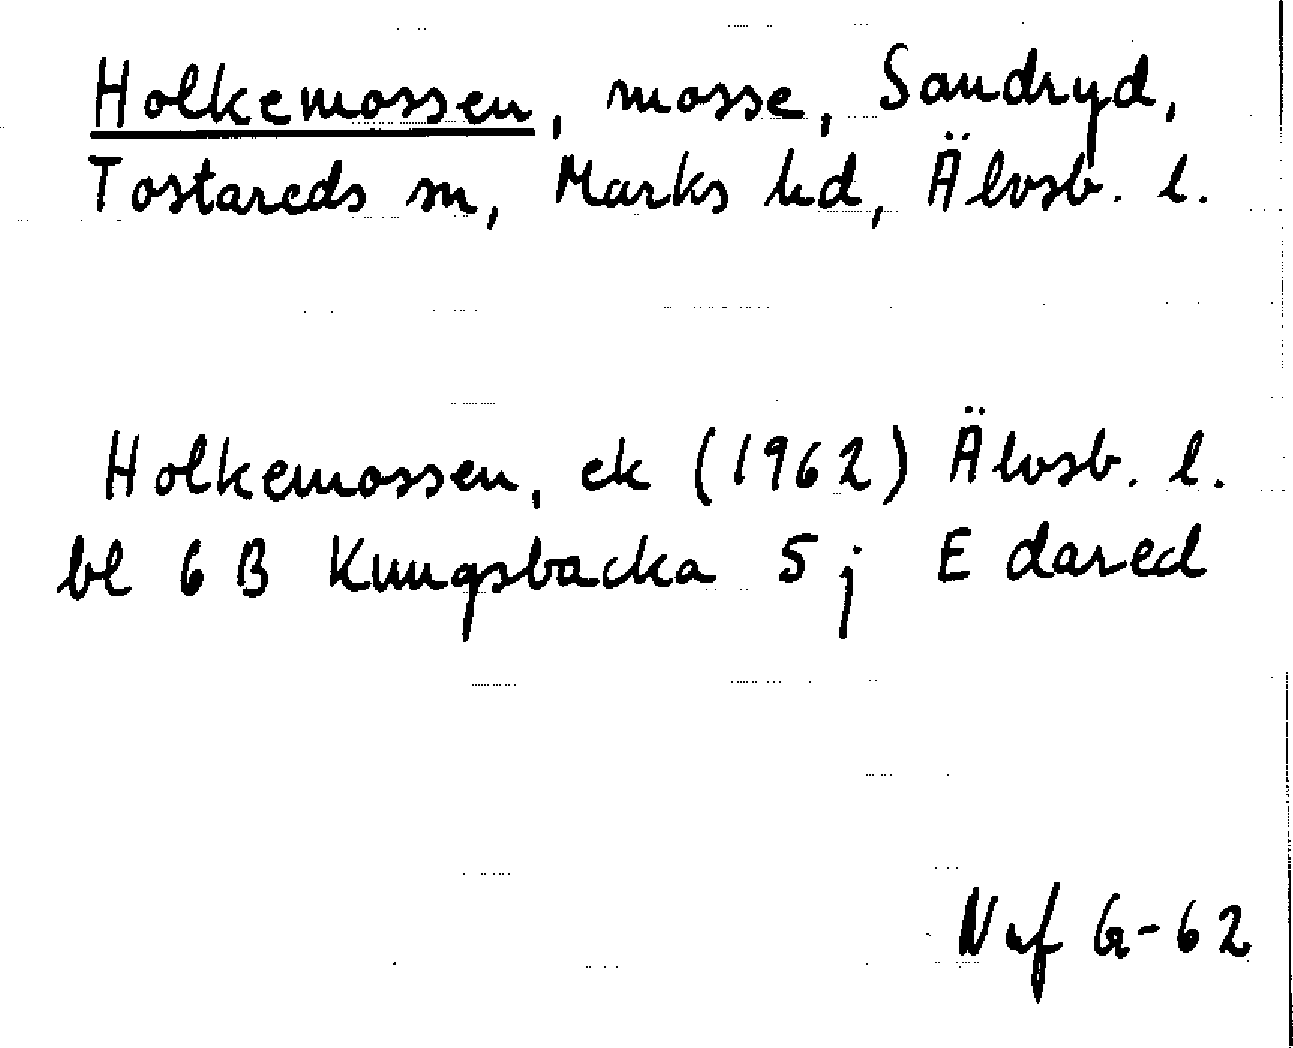 Holkemossen, mosse, Sandryd,
Tostareds sn, Marks hd, Älvsb. l.
Holkemossen, ek (1962) Älvsb. l.
bl 6 B Kungsbacka 5 j E dared
Nuf G-62